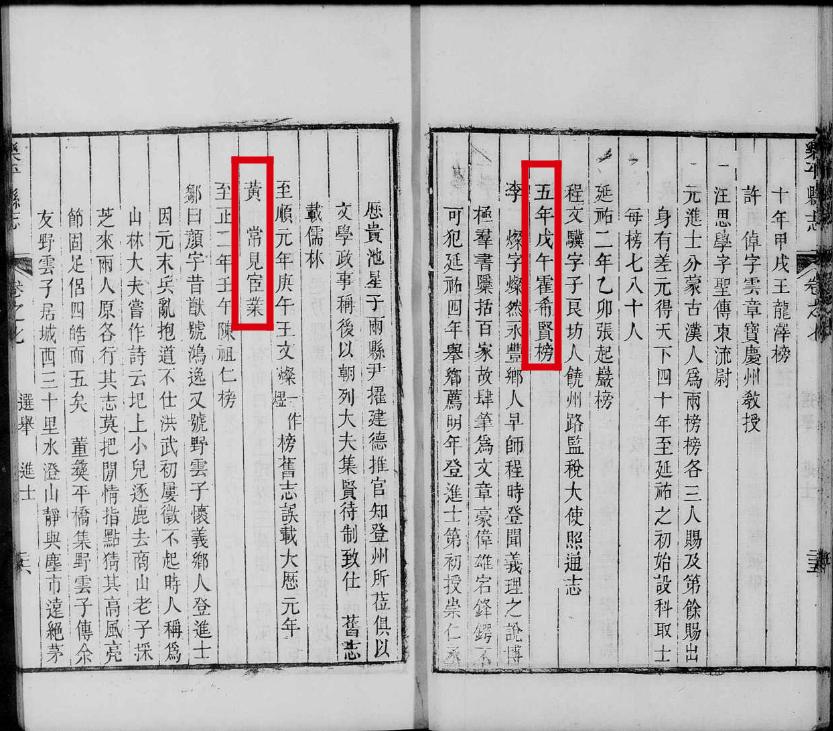 樂平縣志 卷之七 選舉 進士 二十五
十年甲戌王龍澤榜
許 倬字雲章寶慶州教授
汪思學字聖傳東流尉
元進士分蒙古漢人爲兩榜榜各三人賜及第餘賜出
身有差元得天下四十年至延祐之初始設科取士
每榜七八十人
延祐二年乙卯張起巖榜
程文驥字子良坊人饒州路監稅大使照通志
五年戊午霍希賢榜
李 燦字燦然永豐鄉人早師程時登聞義理之說博
極羣書櫽括百家故肆筆爲文章豪偉雄宕鋒鍔不
可犯延祐四年舉鄉薦明年登進士第初授崇仁丞
歷貴池星子兩縣尹擢建德推官知登州所莅俱以
文學政事稱後以朝列大夫集賢待制致仕 舊志
載儒林
至順元年庚午王文燦一作燁榜舊志誤載大歷元年
黃 常見宦業
至正二年壬午陳祖仁榜
鄒曰顏字昔猷號鴻逸又號野雲子懷義鄉人登進士
因元末兵亂抱道不仕洪武初屢徵不起時人稱爲
山林大夫嘗作詩云圯上小兒逐鹿去商山老子採
芝來兩人原各行其志莫把閒情指點猜其高風亮
節固足侶四皓而五矣 董彜平橋集野雲子傳余
友野雲子居城西三十里水澄山靜與塵市遠絕茅
樂平縣志 卷之七 選舉 進士 二十六